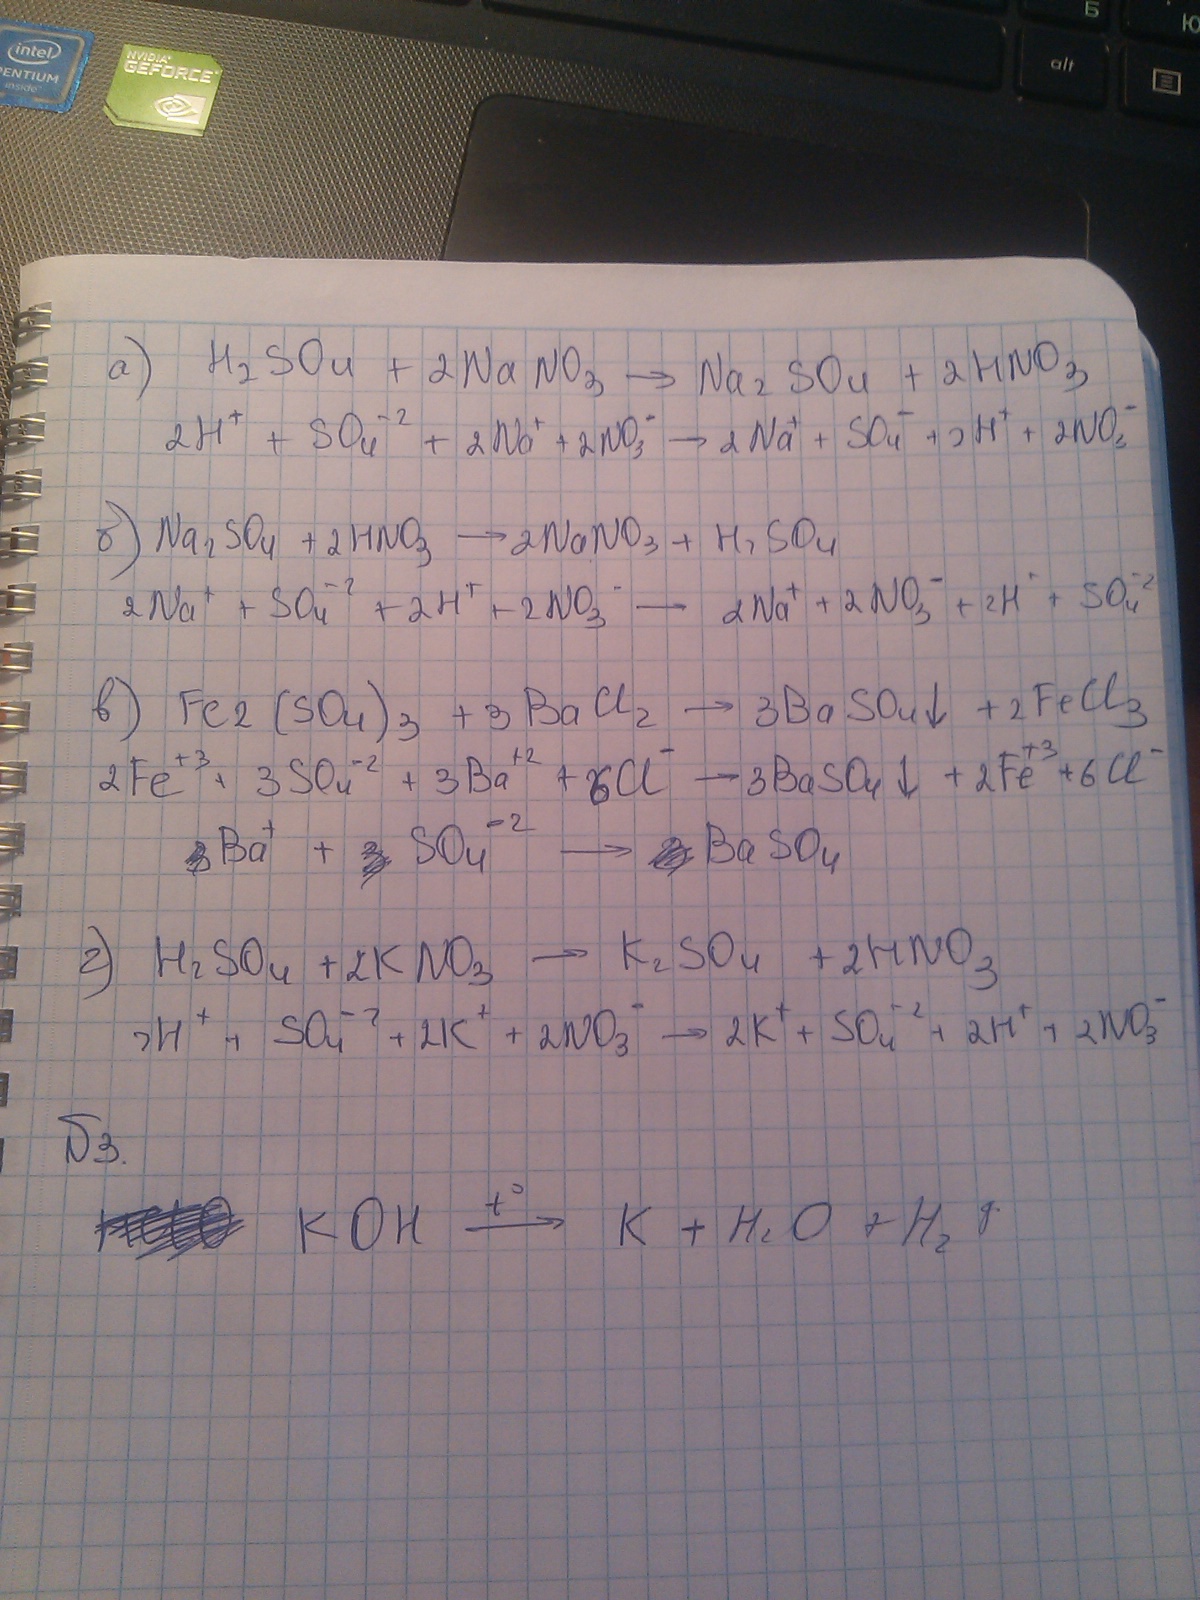 Б
Ю
alt
intel
PENTIUM
inside
NVIDIA
GEFORCE
а) H₂SO₄ + 2NaNO₃ → Na₂SO₄ + 2HNO₃
2H⁺ + SO₄⁻² + 2Na⁺ + 2NO₃⁻ → 2Na⁺ + SO₄⁻ + 2H⁺ + 2NO₃⁻
б) Na₂SO₄ + 2HNO₃ → 2NaNO₃ + H₂SO₄
2Na⁺ + SO₄⁻² + 2H⁺ + 2NO₃⁻ — 2Na⁺ + 2NO₃⁻ + 2H⁺ + SO₄⁻²
в) Fe2(SO₄)₃ + 3BaCl₂ → 3BaSO₄↓ + 2FeCl₃
2Fe⁺³ + 3SO₄⁻² + 3Ba⁺² + 6Cl⁻ → 3BaSO₄↓ + 2Fe⁺³ + 6Cl⁻
Ba⁺ + SO₄⁻² → BaSO₄
г) H₂SO₄ + 2KNO₃ → K₂SO₄ + 2HNO₃
2H⁺ + SO₄⁻² + 2K⁺ + 2NO₃⁻ → 2K⁺ + SO₄⁻² + 2H⁺ + 2NO₃⁻
№3.
KOH t° → K + H₂O + H₂↑